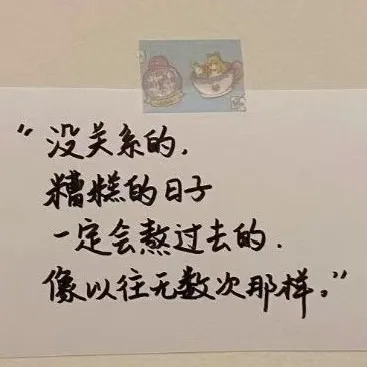 “没关系的,
糟糕的日子
一定会熬过去的.
像以往无数次那样。”